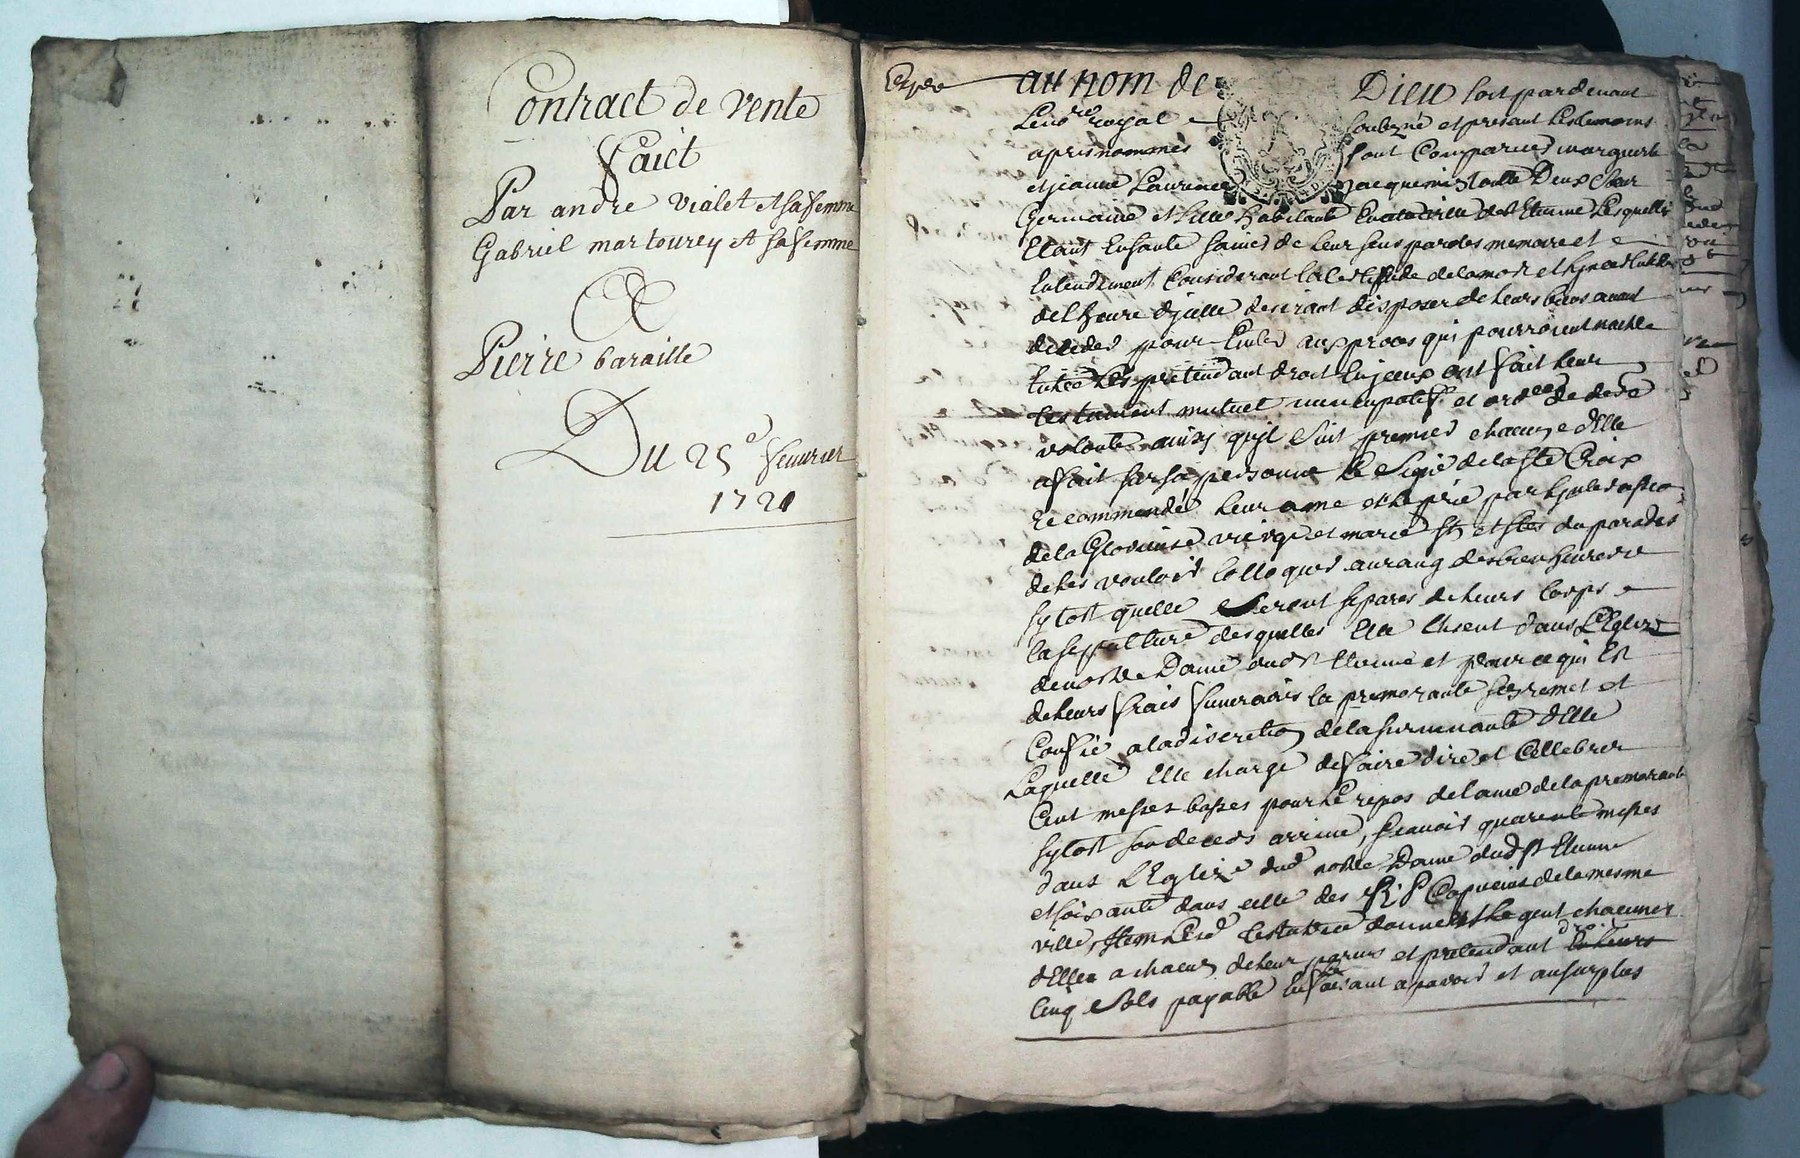 Contract de vente
faict
Par andre vialet et sa femme
Gabriel martourey et sa femme
A
Pierre baraille
Du 25e feuvrier
1721
au nom de Dieu soit pardevant
Le no.re royal soubzné et presant Les temoins
apres nommés sont Comparues marguerite
et jeanne Laurence Deux Sœur
Germaine et filles habitante St Etienne Lesquelles
Etant En sante saines de leur sens parolles memoire et
Entendement Considerant la Certitude de la mort et
de l'heure d'jcelle desirant disposer de leurs biens avant
decedes pour Euiter aux proces qui pourroient naitre
Entre Les pretendant droit En jceux ont fait leur
testament mutuel nuncupatif et ordce de dere
volonte ainsy qu'jl suit premier chacune d'Elle
a fait sur sa personne le Signe de la Ste Croix
recommendé leur ame et le prie par
de la Glorieuse vierge marie Sts et Stes du paradis
de les vouloir Colloquer au rang des bienheureux
sytost quelle seront separes de leurs Corps
la sepulture desquelles Elle Elisent dans L'Eglize
de nostre Dame dud St Etienne et pour ce qui Est
de leurs frais funeraires la premorante remet et
Confie a la discretion de la surviuante d'Elle
Laquelle Elle charge de faire dire et Cellebrer
Cent messes basses pour Le repos de l'ame de la premorante
sytost son deces arriué, scauoir quarante messes
dans L'Eglize dud nostre Dame dud St Etienne
et soixante dans celle des R P Capucins de la mesme
ville, Item Lesd testatrice donnent et Leguent chacunes
d'Elles a chacun de leur parens et pretendant droit
Cinq Sols payable En faisant aparoir et au surplus